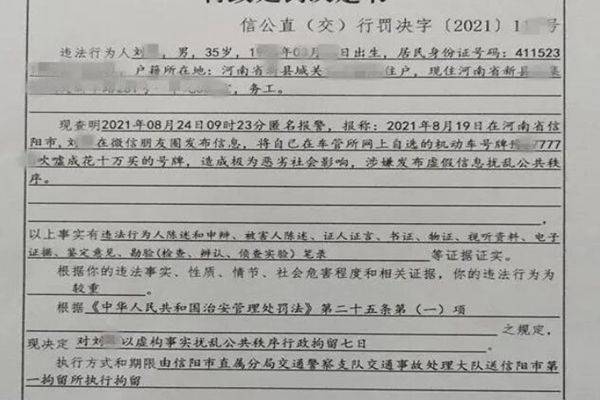 信公直（交）行罚决字〔2021〕1 号
违法行为人刘 ，男，35岁，19 年03月 出生，居民身份证号码：411523
，户籍所在地：河南省新县城关 住户，现住河南省新县 集
，务工。
现查明2021年08月24日09时23分匿名报警，报称：2021年8月19日在河南省信
阳市,刘 在微信朋友圈发布信息，将自己在车管所网上自选的机动车号牌豫 7777
吹嘘成花十万买的号牌，造成极为恶劣社会影响，涉嫌发布虚假信息扰乱公共秩
序。
以上事实有违法行为人陈述和申辩、被害人陈述、证人证言、书证、物证、视听资料、电子
证据、鉴定意见、勘验(检查、辨认、侦查实验) 笔录 等证据证实。
根据你的违法事实、性质、情节、社会危害程度和相关证据，你的违法行为为
较重 。
根据《中华人民共和国治安管理处罚法》第二十五条第（一）项
之规定，
现决定 对刘 以虚构事实扰乱公共秩序行政拘留七日 。
执行方式和期限由信阳市直属分局交通警察支队交通事故处理大队送信阳市第
一拘留所执行拘留